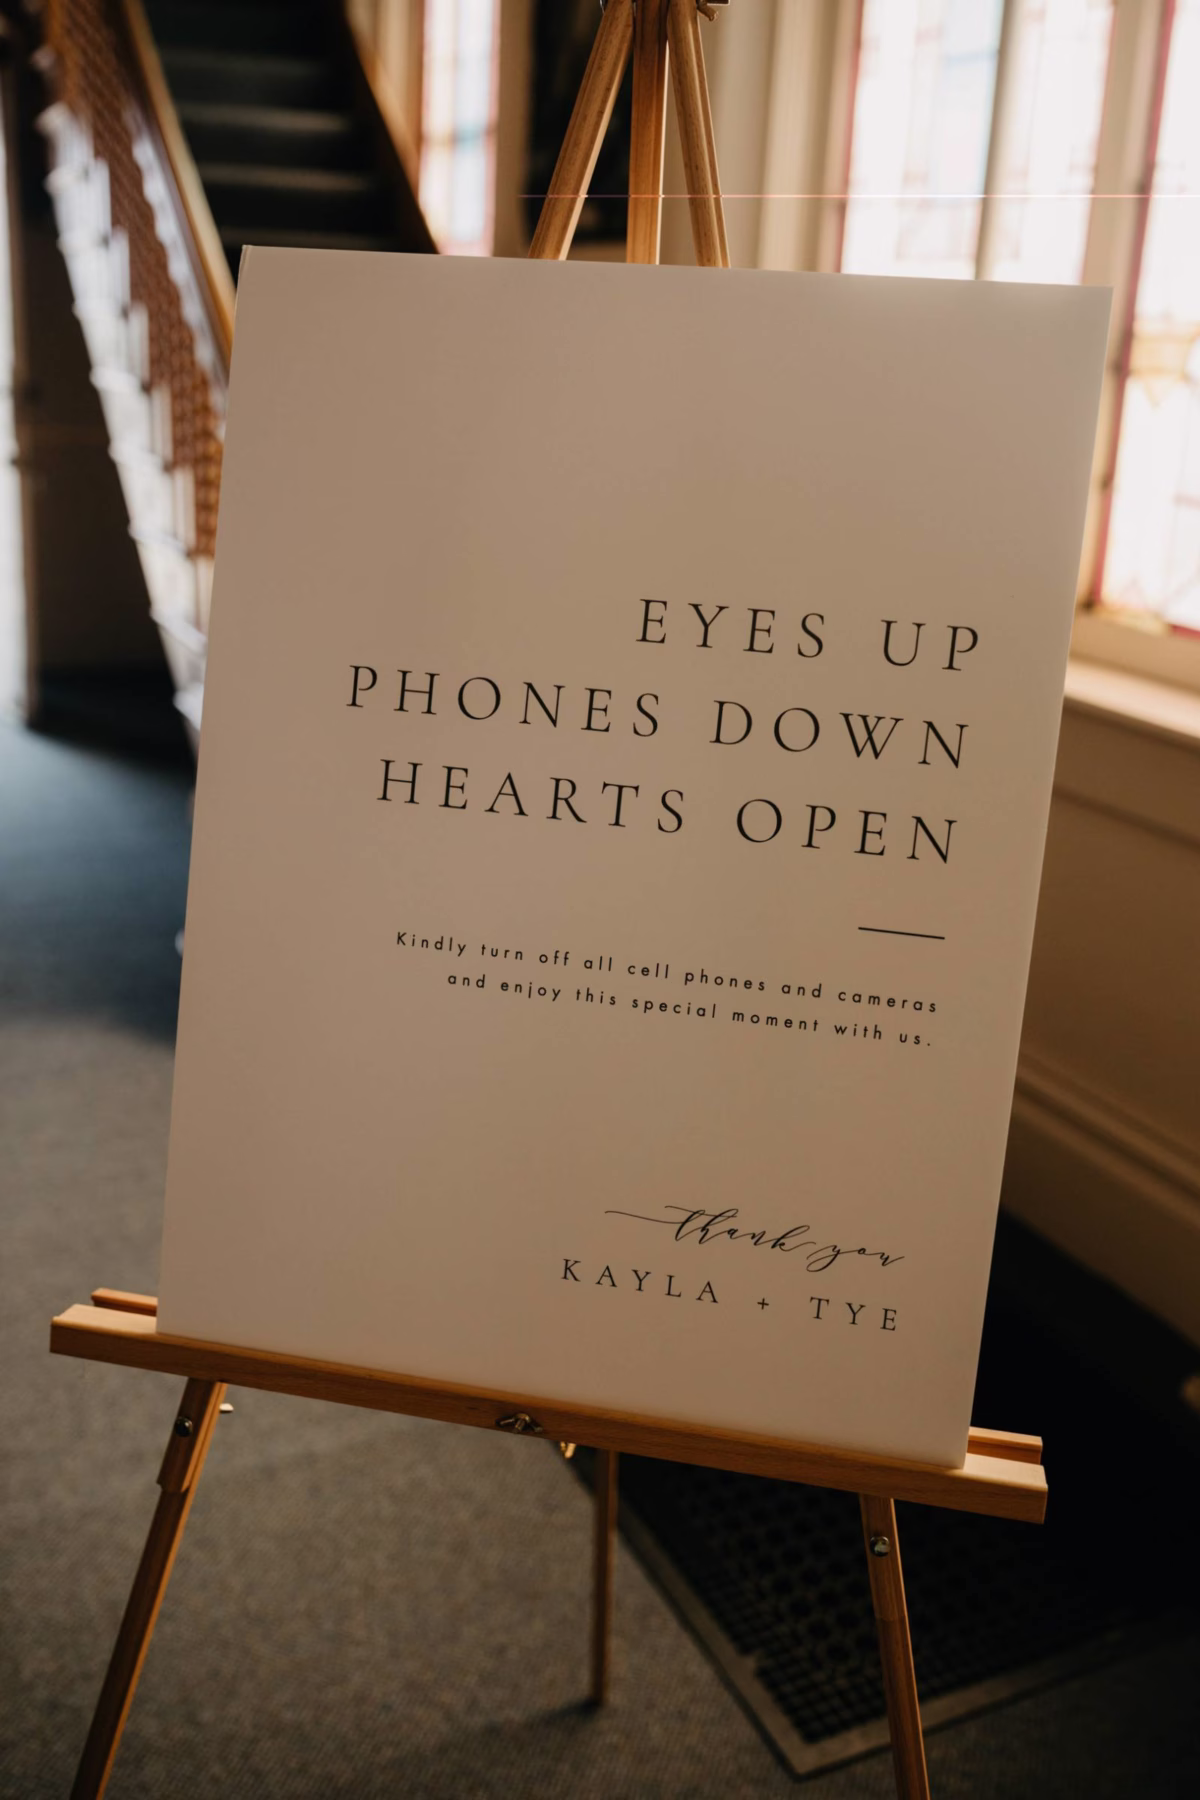 EYES UP
PHONES DOWN
HEARTS OPEN
Kindly turn off all cell phones and cameras
and enjoy this special moment with us.
thank you
KAYLA + TYE